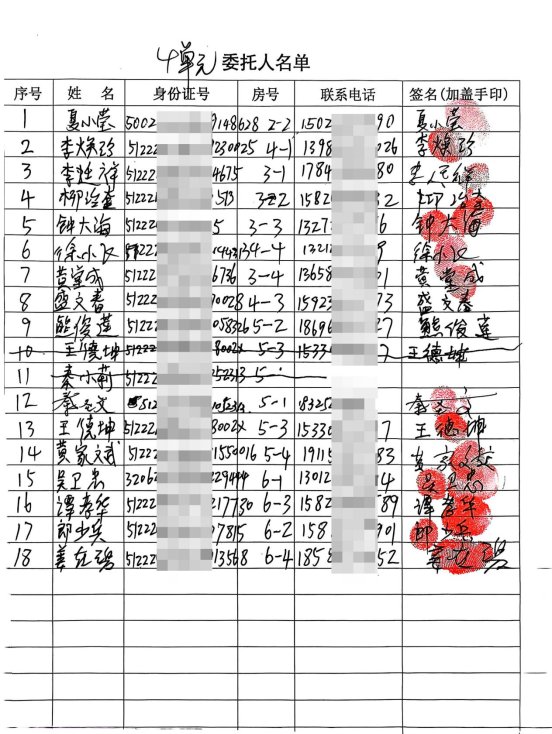 4单元委托人名单
序号 姓 名 身份证号 房号 联系电话 签名(加盖手印)
1 夏小莹 5002 9148628 2-2 1502 90 夏小莹
2 李焕珍 51222 230025 4-1 1398 026 李焕珍
3 李 祥 51222 4675 3-1 1784 80 李 祥
4 柳 51222 513 3-2 1582 32 柳
5 钟大海 51222 5 3-3 1327 6 钟大海
6 徐小 51222 4-4 1321 9 徐小
7 黄堂成 51222 6736 3-4 13658 01 黄堂成
8 盛文春 51222 70028 4-3 15923 73 盛文春
9 熊俊莲 51222 058326 5-2 18696 27 熊俊莲
10 王德坤 51222 8002X 5-3 1533 7 王德坤
11 秦小莉 51222 252313 5-
12 秦 文 512 5-1 8325 秦 文
13 王德坤 51222 8002X 5-3 15330 7 王德坤
14 黄家斌 51222 1550016 5-4 1911 83 黄家
15 吴卫忠 3206 229444 6-1 13012 4 吴卫忠
16 谭孝华 51222 217730 6-3 1582 589 谭孝华
17 郎少兵 51222 07815 6-2 158 901 郎少兵
18 姜红 51222 013568 6-4 1858 52 姜红